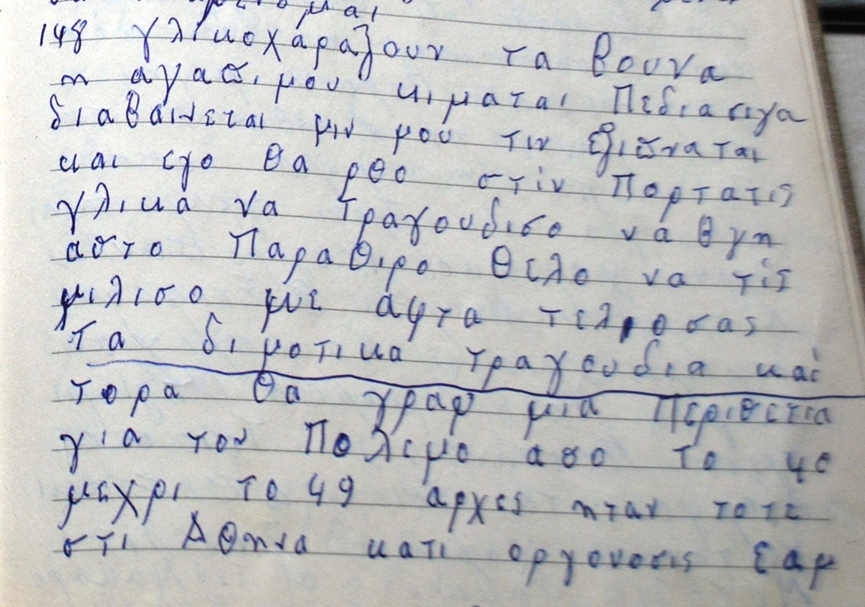 148 γλικοχαραζουν τα βουνα
η αγαπιμου κιμαται Πεδιασιγα
διαβαινεται μιν μου τιν ξιπναται
και εγο θα ρθο στίν Πορτατις
γλικα να τραγουδισο να βγη
απτο Παραθιρο θελο να τίς
μιλισο με αφτα τελιοσας
Τα διμοτικα τραγουδια καί
τορα θα γραψ μια Περιθετια
για τον Πολεμο απο το 40
μεχρι το 49 αρχες ηταν τοτε
στι Αθηνα κατι οργονοσις Εαμ